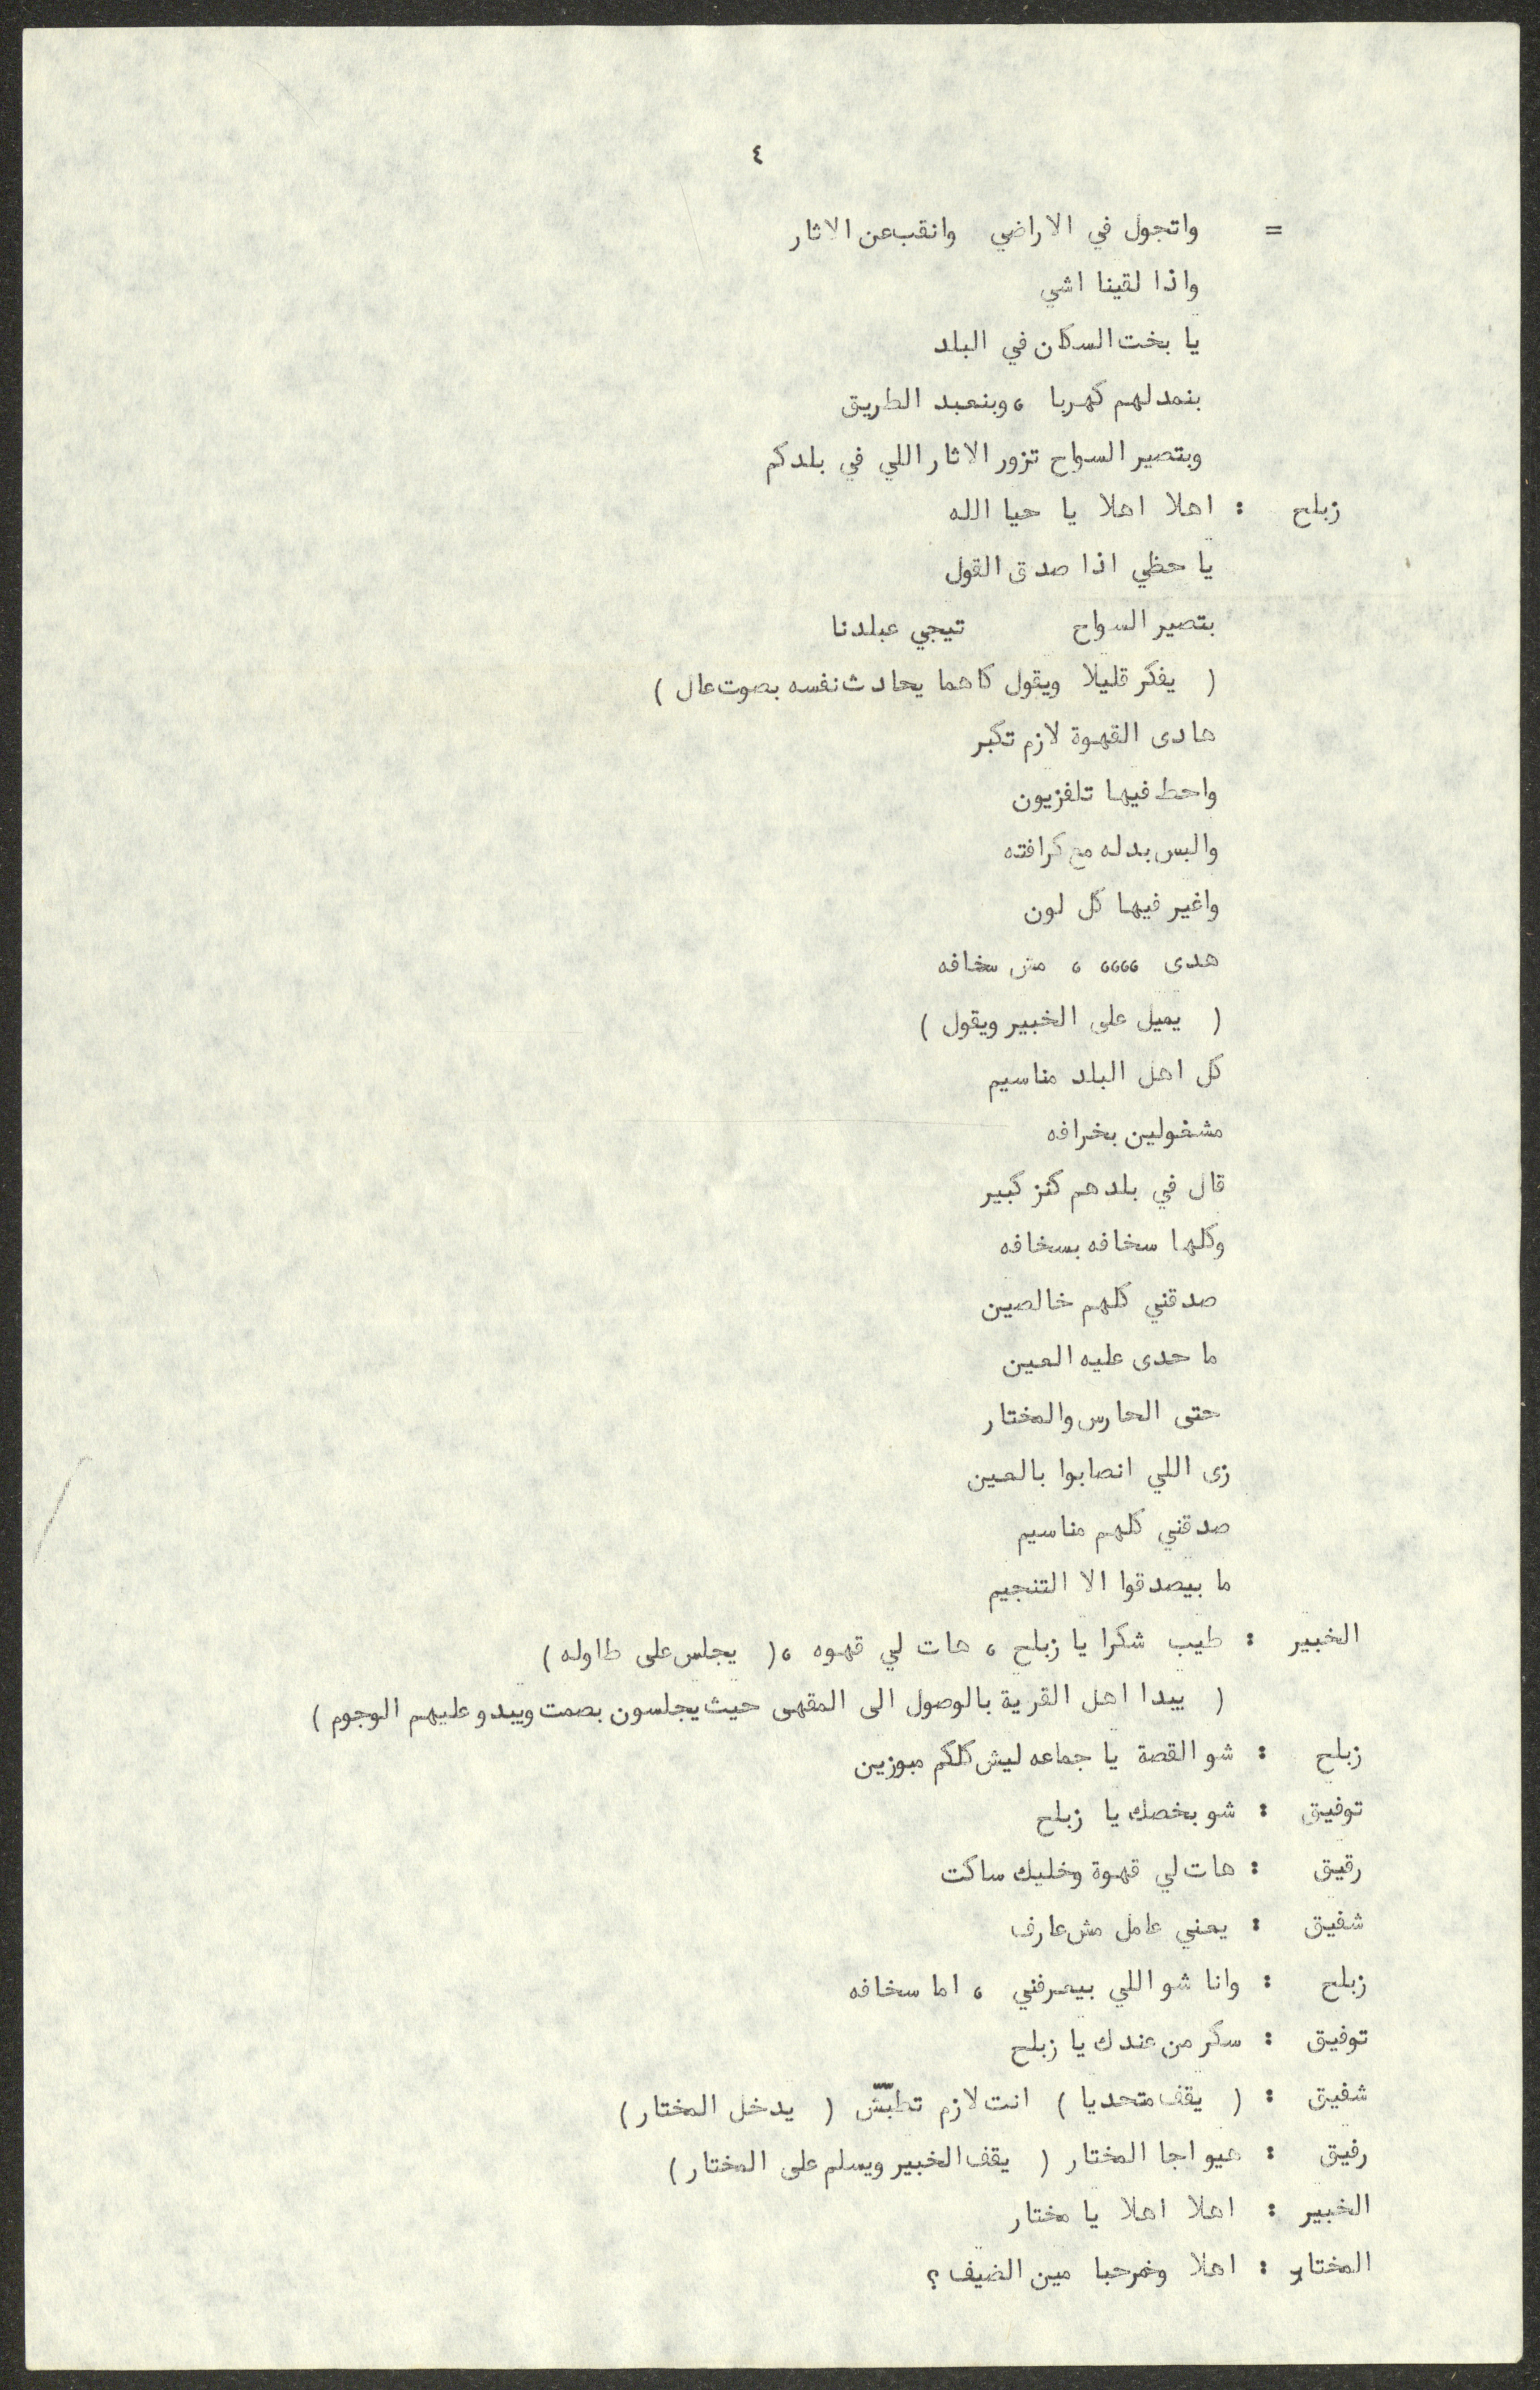 ٤
= واتجول في الاراضي وانقب عن الاثار
واذا لقينا اشي
يا بخت السكان في البلد
بنمد لهم كهربا ، وبنعبد الطريق
وبتصير السواح تزور الاثار اللي في بلدكم
زبلح : اهلا اهلا يا حيا الله
يا حظي اذا صدق القول
بتصير السواح تيجي عبلدنا
( يفكر قليلا ويقول كاهما يحادث نفسه بصوت عال )
هادى القهوة لازم تكبر
واحط فيها تلفزيون
والبس بدله مع كرافته
واغير فيها كل لون
هدى ،،،، ، مش سخافه
( يميل على الخبير ويقول )
كل اهل البلد مناسيم
مشغولين بخرافه
قال في بلدهم كنز كبير
وكلها سخافه بسخافه
صدقني كلهم خالصين
ما حدى عليه العين
حتى الحارس والمختار
زى اللي انصابوا بالعين
صدقني كلهم مناسيم
ما بيصدقوا الا التنجيم
الخبير : طيب شكرا يا زبلح ، هات لي قهوه ،( يجلس على طاوله )
( يبدا اهل القرية بالوصول الى المقهى حيث يجلسون بصمت ويبدو عليهم الوجوم )
زبلح : شو القصة يا جماعه ليش كلكم مبوزين
توفيق : شو بخصك يا زبلح
رقيق : هات لي قهوة وخليك ساكت
شفيق : يعني عامل مش عارف
زبلح : وانا شو اللي بيعرفني ، اما سخافه
توفيق : سكر من عندك يا زبلح
شفيق : ( يقف متحديا ) انت لازم تطبّش ( يدخل المختار )
رفيق : هيو اجا المختار ( يقف الخبير ويسلم على المختار )
الخبير : اهلا اهلا يا مختار
المختار : اهلا ومرحبا مين الضيف ؟